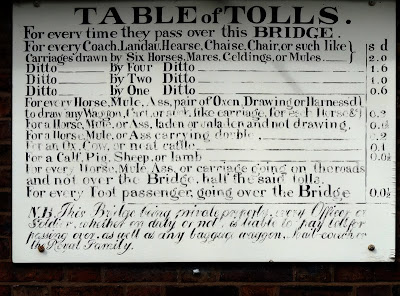 TABLE of TOLLS.
For every time they pass over this BRIDGE.
For every Coach, Landau, Hearse, Chaise, Chair, or such like } s d
Carriages drawn by Six Horses, Mares, Geldings, or Mules 2.0
Ditto by Four Ditto 1.6
Ditto by Two Ditto 1.0
Ditto by One Ditto 0.6
For every Horse, Mule, Ass, pair of Oxen, Drawing or Harness'd
to draw any Waggon, Cart, or such like carriage, for each Horse &c 0.2
For a Horse, Mule, or Ass, laden or unladen and not drawing,
For a Horse, Mule, or Ass carrying double 0.2
For an Ox, Cow, or neat cattle 0.1
For a Calf, Pig, Sheep, or lamb 0.0½
For every Horse, Mule, Ass, or carriage going on the roads
and not over the Bridge, half the said tolls.
For every Foot passenger, going over the Bridge 0.0½
N.B. This Bridge being private property, every Officer or
Soldier, whether on duty or not, is liable to pay toll for
passing over, as well as any baggage waggon, Mail-coach or
the Royal Family.